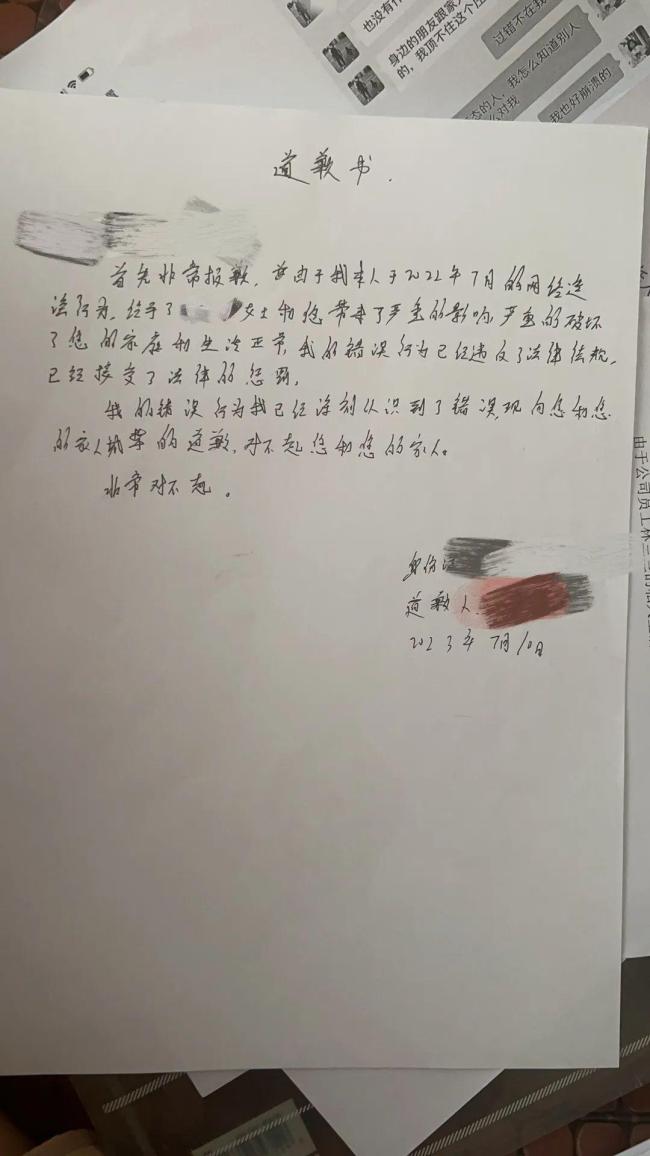 也没有
身边的朋友跟家
的，我顶不住这个
过错不在我
态的人，我怎么知道别人
么对我
我也好崩溃的
道歉书.
首先非常报歉，由于我本人于2022年7月的网络违
法行为，给予了女士和您带来了严重的影响，严重的破坏
了您的家庭和生活正常，我的错误行为已经违反了法律法规，
已经接受了法律的惩罚。
我的错误行为我已经深刻认识到了错误，现向您和您
的家人诚挚的道歉，对不起您和您的家人。
非常对不起。
身份证
道歉人
2023年7月10日
由于公司员工林三三的